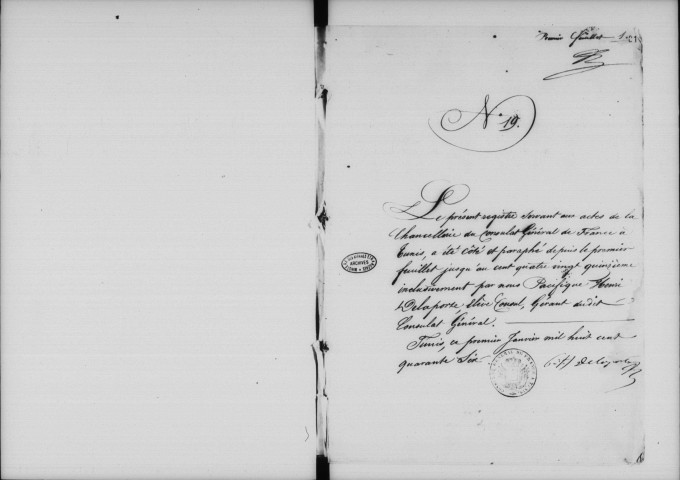 Premier feuillet
N° 19.
Le présent registre servant aux actes de la
Chancellerie du Consulat Général de France à
Tunis, a été côté et paraphé depuis le premier
feuillet jusqu'au cent quatre vingt quinzième
inclusivement par nous Pacifique Henri
Delaporte, Elève Consul, Gérant du dit
Consulat Général.
Tunis, ce premier Janvier mil huit cent
quarante Six
Delaporte
ARCHIVES